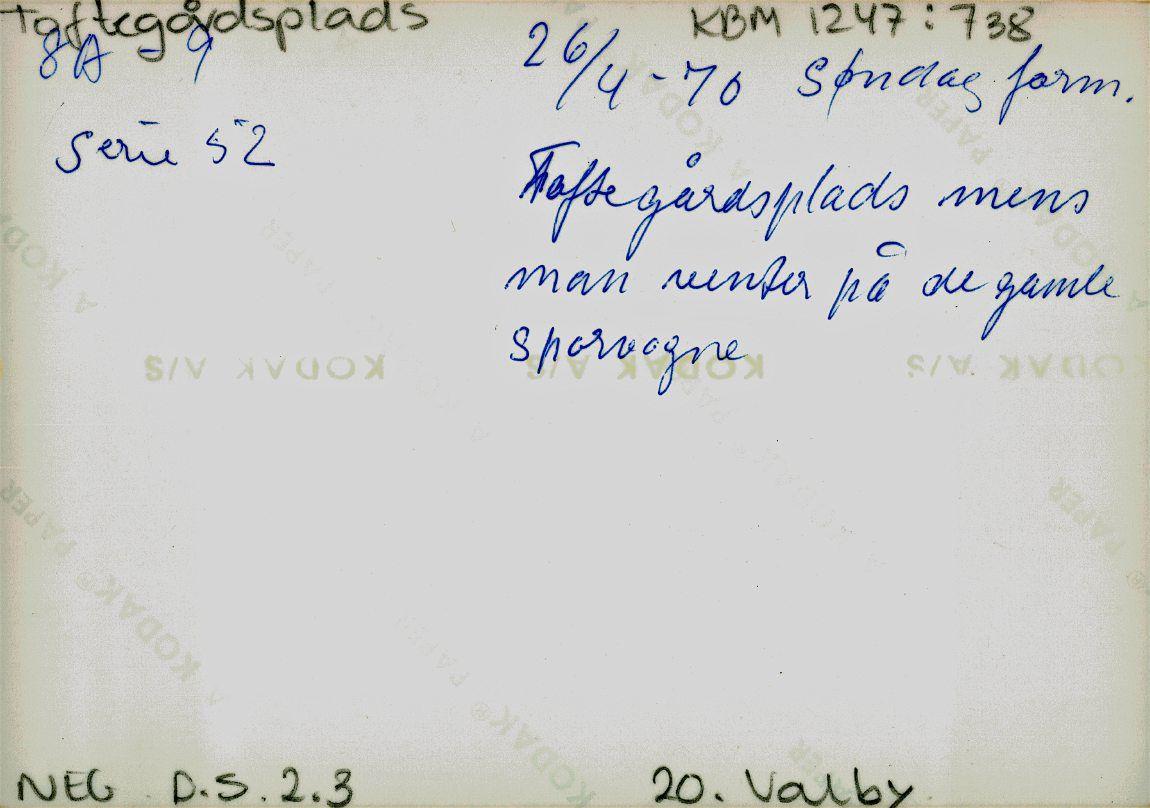 Toftegårdsplads KBM 1247:738
8A - 9 26/4-70 Søndag form.
Serie 52
Toftegårdsplads mens
man venter på de gamle
sporvogne
KODAK A/S KODAK A/S KODAK A/S
NEG D.S.2.3 20. Valby